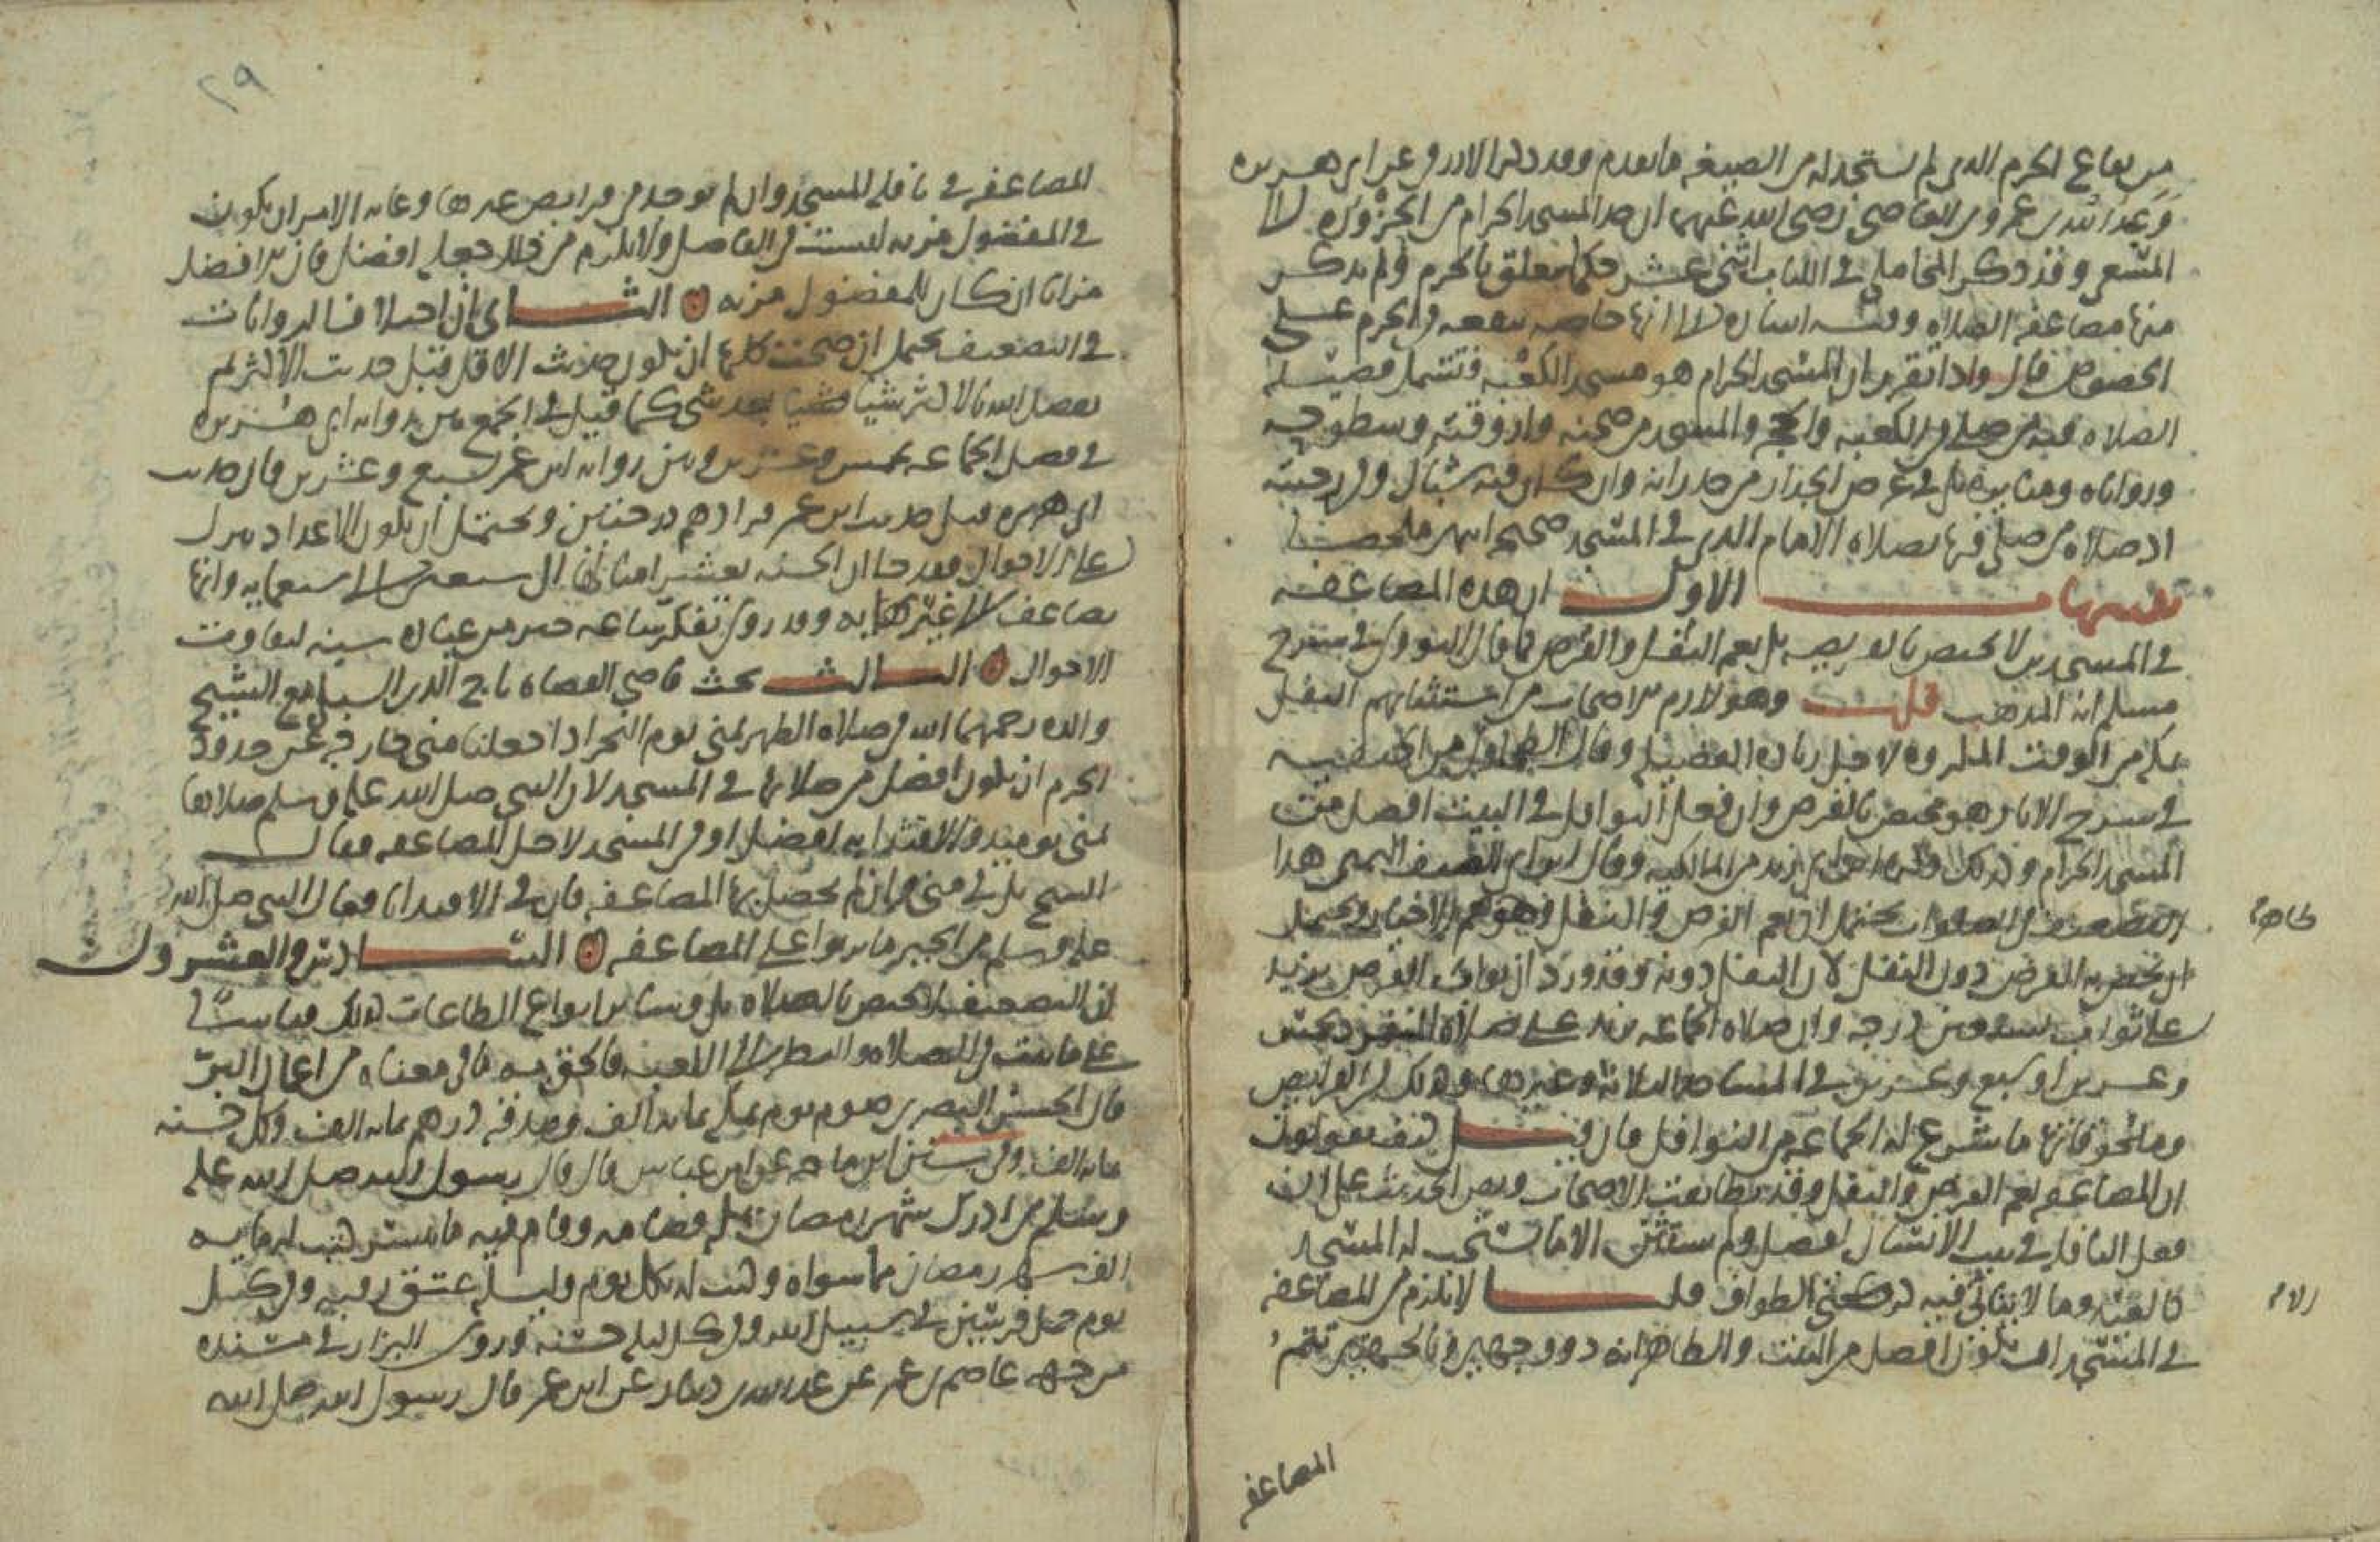 من بقاع الحرم الذي لم يستحد له من الصيغه ما تقدم وقد ذكر الازرقي عن ابي هريره
وعبد الله بن عمرو بن العاصي رضي الله عنهما ان حد المسجد الحرام من الحزوره الى
المسعى وقد ذكر المحاملي في اللباب اثني عشر حكما يتعلق بالحرم ولم يذكر
منها مضاعفه الصلاه وفيه اشاره الى انها خاصه ببقعه في الحرم على
الخصوص قال واذا تقرر ان المسجد الحرام هو مسجد الكعبه فتشمل فضيله
الصلاه فيه من صلى في الكعبه والحجر والمسجد من صحنه واروقته وسطوحه
ورواياه ومنابره بل في عرض الجدار من جدرانه وان كان فيه شباك وفي رحبته
اذ صلاه من صلى فيها بصلاه الامام الذي في المسجد صحيح انتهى ملخصا
تنبيهات الاول ان هذه المضاعفه
في المسجدين لا تختص بالفريضه بل تعم النفل والفرض كما قال النووي في شرح
مسلم انه المذهب قلت وهو لازم للاصحاب من استثنائهم النفل
بمكه من الوقت المكروه لاجل زياده الفضيله وقال الطحاوي من الحنفيه
في شرح الاثار هو مختص بالفرض وان فعل النوافل في البيت افضل من
المسجد الحرام وكذلك ذكره ابن ابي زيد من المالكيه وقال ابن ابي الصيف اليمني هذا
التضعيف في الصلوات يحتمل ان يعم الفرض والنفل وهو ظاهر الاخبار ويحتمل
ان يختص به الفرض دون النفل لان النفل دونه وقد ورد ان ثواب الفرض يزيد
على ثواب بسبعين درجه وان صلاه الجماعه تزيد على صلاه المنفرد بخمس
وعشرين او سبع وعشرين في المساجد الثلاثه وغيرها وذلك في الفرائض
وما نحو فانها ما شرع له الجماعه من النوافل فان قيل كيف تقولون
ان المضاعفه تعم الفرض والنفل وقد تطابقت الاصحاب ونص الحديث على ان
فعل النافله في بيت الانسان افضل ولم يستثن الا ما تستحب له المسجد
كالعيد وما لا يتاتى فيه كركعتي الطواف قلنا لا يلزم من المضاعفه
في المسجد ان يكون افضل من البيت والظاهر انه ذو وجهين وبالجهتين تتم
ظاهر
المضاعفه
٢٩
المضاعفه في نافله المسجد وان لم يوجد في فرايض غيرها وغايه الامر ان يكون
في المفضول مزيه ليست في الفاضل ولا يلزم من ذلك جعله افضل فان للافضل
مزايا ان كان للمفضول مزيه الثاني ان اختلاف الروايات
في التضعيف يحتمل ان صحت كلها ان يكون حديث الاقل قبل حديث الاكثر ثم
تفضل الله بالاكثر شيئا فشيئا بعد شي كما قيل في الجمع بين روايه ابي هريره
في فضل الجماعه بخمس وعشرين وبين روايه ابن عمر بسبع وعشرين فان حديث
ابي هريره قبل حديث ابن عمر فزادهم درجتين ويحتمل ان يكون الاعداد تنزل
على الاحوال فقد جا ان الحسنه بعشر امثالها الى سبعين الى سبعمايه وانها
تضاعف الى غير نهايه وقد روي تفكر ساعه خير من عباده سنه لتفاوت
الاحوال الثالث بحث قاضي القضاه تاج الدين السبكي مع الشيخ
والده رحمهما الله في صلاه الظهر بمنى يوم النحر اذا جعلنا منى خارجه عن حدود
الحرم ان يكون افضل من صلاتها في المسجد لان النبي صلى الله عليه وسلم صلاها
بمنى يوميذ والاقتدا به افضل او في المسجد لاجل المضاعفه فقال
الشيخ بل في منى وان لم يحصل بها المضاعفه فان في الاقتدا بافعال النبي صلى الله
عليه وسلم من الخير ما يربو على المضاعفه السادس والعشرون
ان التضعيف لا يختص بالصلاه بل وسائر انواع الطاعات كذلك قياسا
على ما ثبت في الصلاه والنظر الى الكعبه فالحق به ما في معناه من اعمال البر
قال الحسن البصري صوم يوم بمكه بمايه الف وصدقه درهم بمايه الف وكل حسنه
بمايه الف وفي سنن ابن ماجه عن ابن عباس قال قال رسول الله صلى الله عليه
وسلم من ادرك شهر رمضان بمكه فصامه وقام فيه ما تيسر كتب له مايه
الف شهر رمضان فيما سواه وكتب له بكل يوم وليله عتق رقبه وفي كل
يوم حمل فرسين في سبيل الله وفي كل ليله حسنه وروى البزار في مسنده
من جهه عاصم بن عمر عن عبد الله بن دينار عن ابن عمر قال رسول الله صلى الله